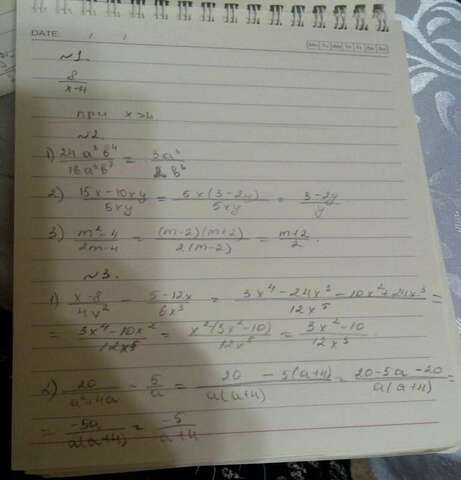 DATE: / /
№1
8/(x-4)
при x>4
№2
1) 24a³b⁴ / 16a³b³ = 3a³ / 2b³
2) (15x-10xy)/5xy = 5x(3-2y)/5xy = (3-2y)/y
3) (m²-4)/(2m-4) = (m-2)(m+2)/2(m-2) = (m+2)/2.
№3.
1) (x-8)/4x² - (5-12x)/6x³ = (3x⁴-24x³-10x²+24x³)/12x⁵ =
= (3x⁴-10x²)/12x⁵ = x²(3x²-10)/12x⁵ = (3x²-10)/12x⁵.
2) 20/(a²+4a) - 5/a = (20 - 5(a+4))/a(a+4) = (20-5a-20)/a(a+4) =
= -5a/a(a+4) = -5/(a+4)